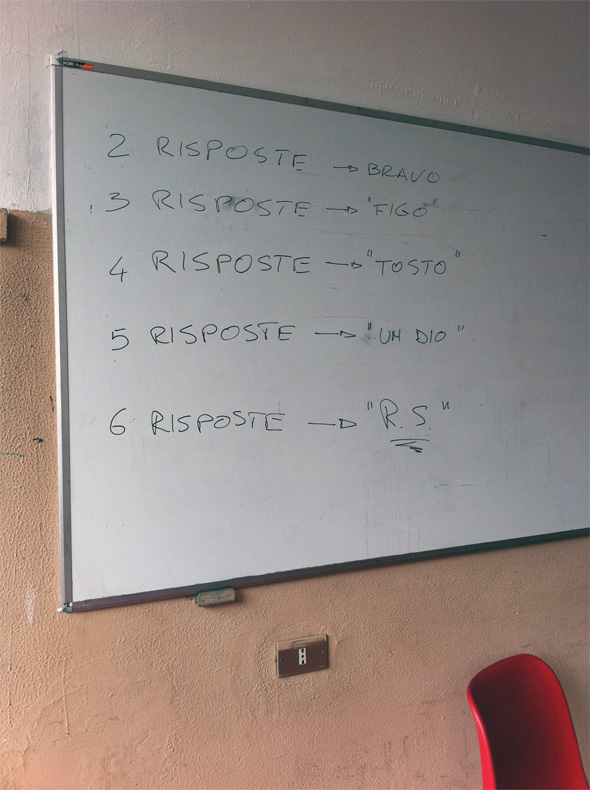 2 RISPOSTE → BRAVO
3 RISPOSTE → "FIGO"
4 RISPOSTE → "TOSTO"
5 RISPOSTE → "UN DIO"
6 RISPOSTE → "R.S."